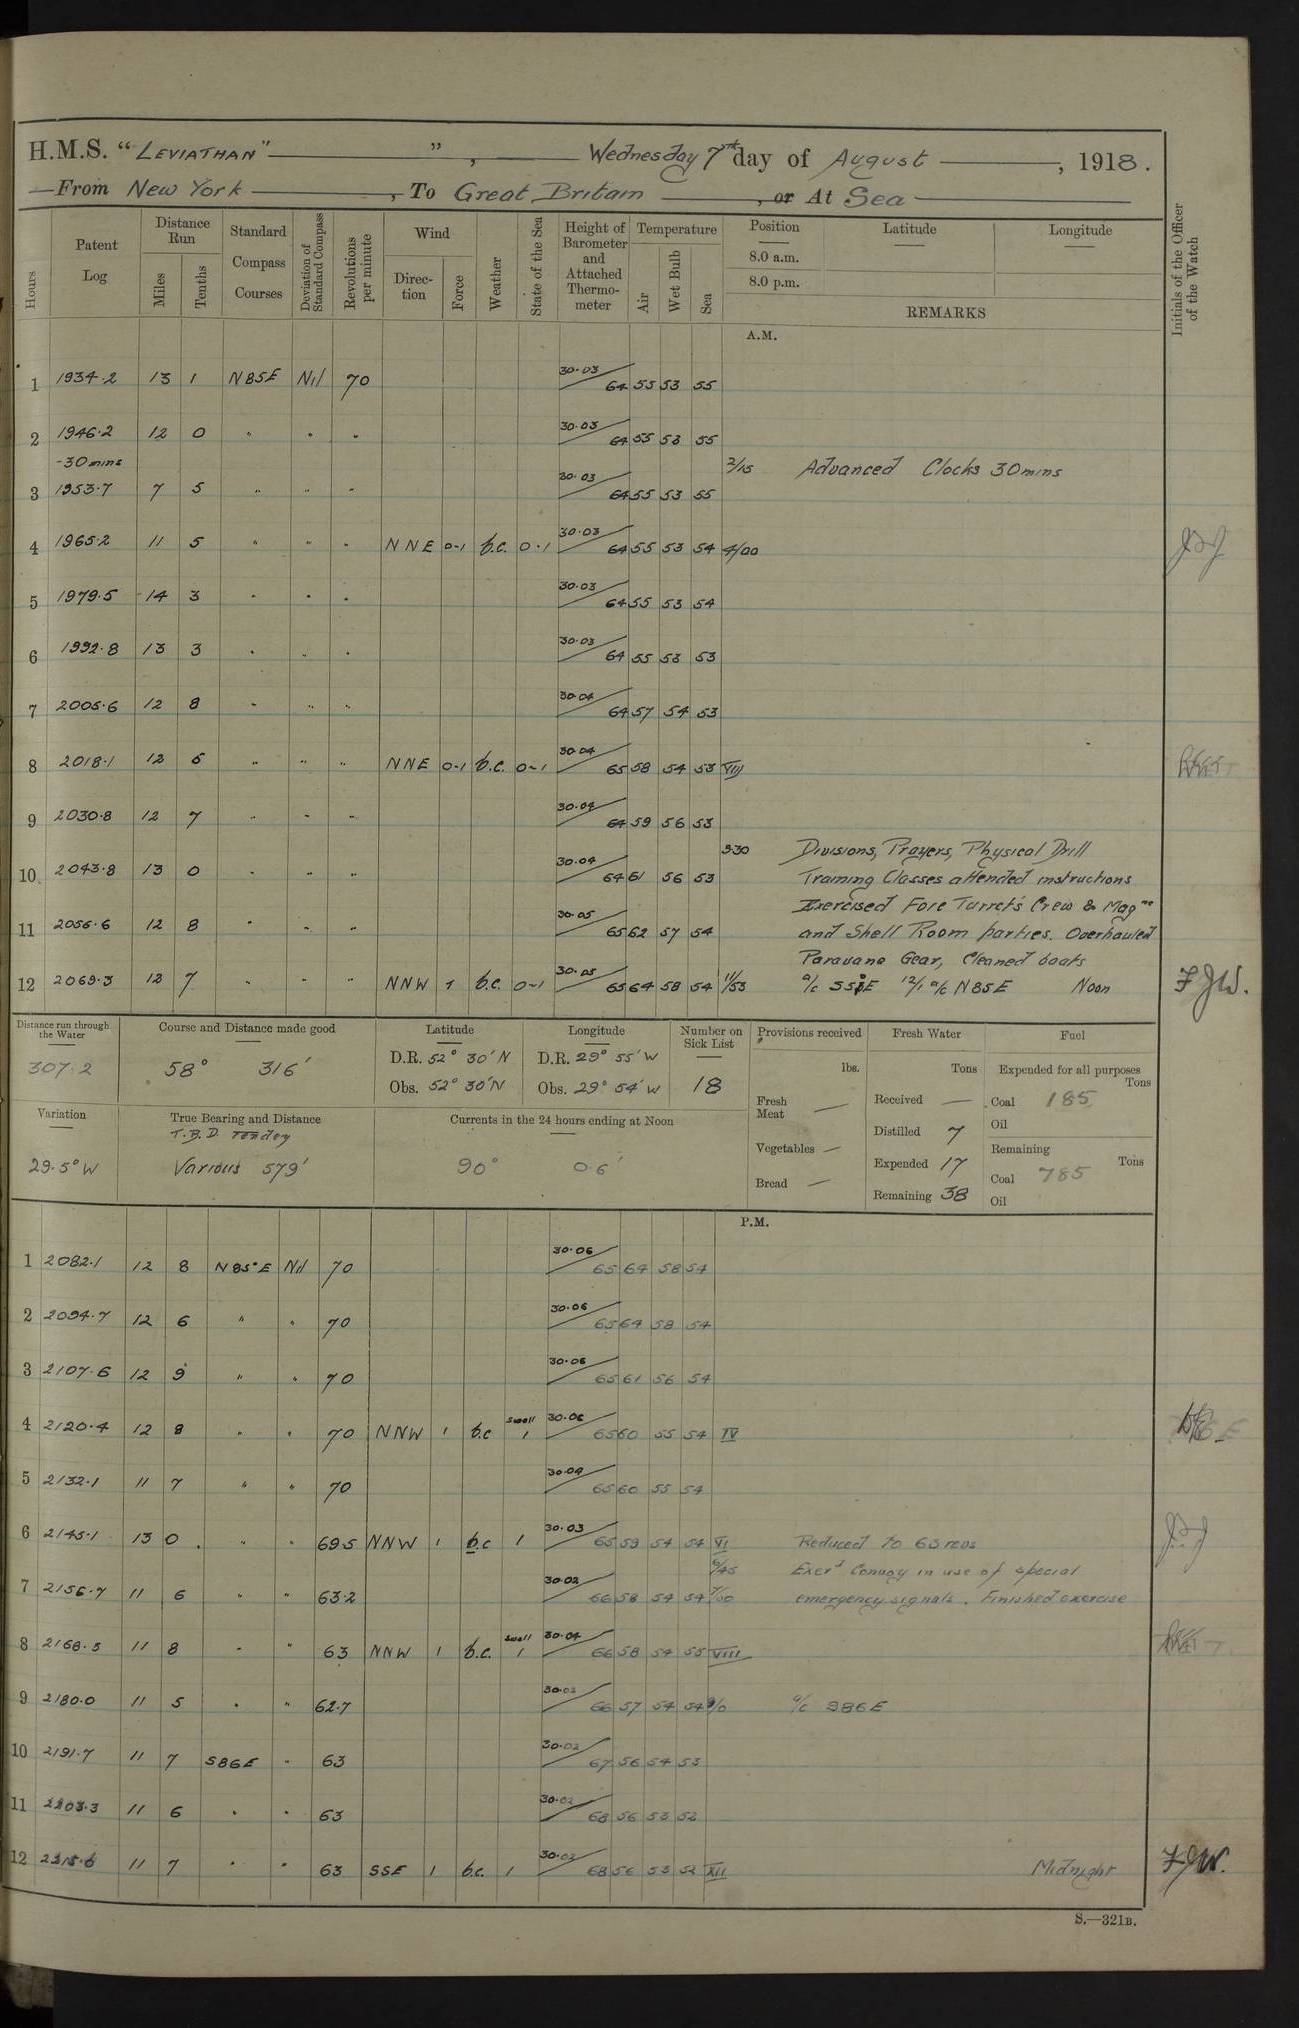 H.M.S. "LEVIATHAN" ", Wednesday 7th day of August, 1918.
From New York, To Great Britain, or At Sea
Hours
Patent Log
Distance Run
Miles
Tenths
Standard Compass Courses
Deviation of Standard Compass
Revolutions per minute
Wind
Direction
Force
Weather
State of the Sea
Height of Barometer and Attached Thermometer
Temperature
Air
Wet Bulb
Sea
Position
8.0 a.m.
8.0 p.m.
Latitude
Longitude
REMARKS
Initials of the Officer of the Watch
A.M.
1 1934.2 13 1 N85E Nil 70 30.03 64 55 53 55
2 1946.2 12 0 " " " 30.03 64 55 53 55
-30 mins 2/15 Advanced Clocks 30 mins
3 1953.7 7 5 " " " 30.03 64 55 53 55
4 1965.2 11 5 " " " NNE 0-1 b.c. 0-1 30.03 64 55 53 54 4/00
5 1979.5 14 3 " " " 30.03 64 55 53 54
6 1992.8 13 3 " " " 30.03 64 55 53 53
7 2005.6 12 8 " " " 30.04 64 57 54 53
8 2018.1 12 5 " " " NNE 0-1 b.c. 0-1 30.04 65 58 54 53 VIII
9 2030.8 12 7 " " " 30.04 64 59 56 53
9.30 Divisions, Prayers, Physical Drill
10 2043.8 13 0 " " " 30.04 64 61 56 53 Training Classes attended instructions
Exercised Fore Turret's Crew & Magne
11 2056.6 12 8 " " " 30.05 65 62 57 54 and Shell Room parties. Overhauled
Paravane Gear, Cleaned boats
12 2069.3 12 7 " " " NNW 1 b.c. 0-1 30.05 65 64 58 54 11/53 a/c E 12/1 a/c N85E Noon F.J.W.
Distance run through the Water
307.2
Course and Distance made good
58° 316'
Latitude
D.R. 52° 30' N
Obs. 52° 30' N
Longitude
D.R. 29° 55' W
Obs. 29° 54' W
Number on Sick List
18
Provisions received
lbs.
Fresh Meat —
Vegetables —
Bread —
Fresh Water
Tons
Received —
Distilled 7
Expended 17
Remaining 38
Fuel
Expended for all purposes
Tons
Coal 185
Oil
Remaining
Tons
Coal 785
Oil
Variation
29.5° W
True Bearing and Distance
T.B.D.
Various 579'
Currents in the 24 hours ending at Noon
90° 0.6'
P.M.
1 2082.1 12 8 N85°E Nil 70 30.06 65 64 58 54
2 2094.7 12 6 " " 70 30.06 65 64 58 54
3 2107.6 12 9 " " 70 30.06 65 61 56 54
4 2120.4 12 8 " " 70 NNW 1 b.c swell 1 30.06 65 60 55 54 IV
5 2132.1 11 7 " " 70 30.04 65 60 55 54
6 2145.1 13 0 " " 69.5 NNW 1 b.c 1 30.03 65 59 54 54 VI Reduced to 63 revs
6/45 Exerd Convoy in use of special
7 2156.7 11 6 " " 63.2 30.02 66 58 54 54 7/30 emergency signals. Finished exercise
8 2168.5 11 8 " " 63 NNW 1 b.c. swell 1 30.04 66 58 54 55 VIII
9 2180.0 11 5 " " 62.7 30.02 66 57 54 54 9/0 a/c S86E
10 2191.7 11 7 S86E " 63 30.02 67 56 54 53
11 2203.3 11 6 " " 63 30.02 68 56 53 52
12 11 7 " " 63 SSE 1 b.c. 1 30.02 68 56 53 52 XII Midnight F.J.W.
S.—321B.